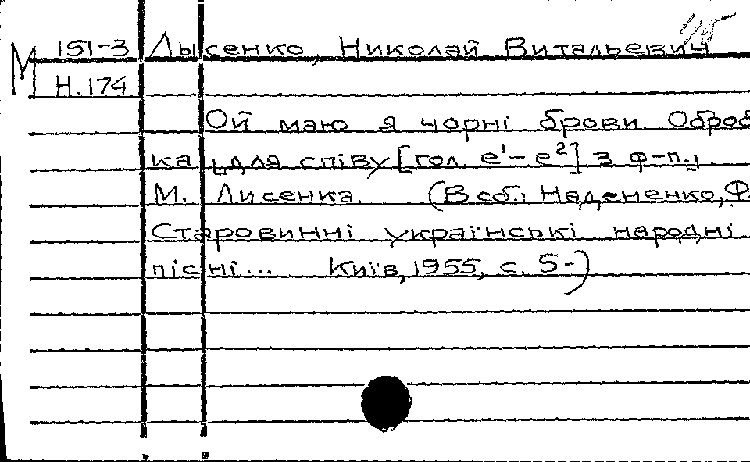 М 151-3 Лысенко, Николай Витальевич
Н.174
Ой маю я чорні брови Оброб
ка для співу [гол. e¹-e²] з ф-п.,
М. Лисенка. (В сб.: Надененко, Ф.
Старовинні українські народні
пісні... Київ, 1955, с. 5-)